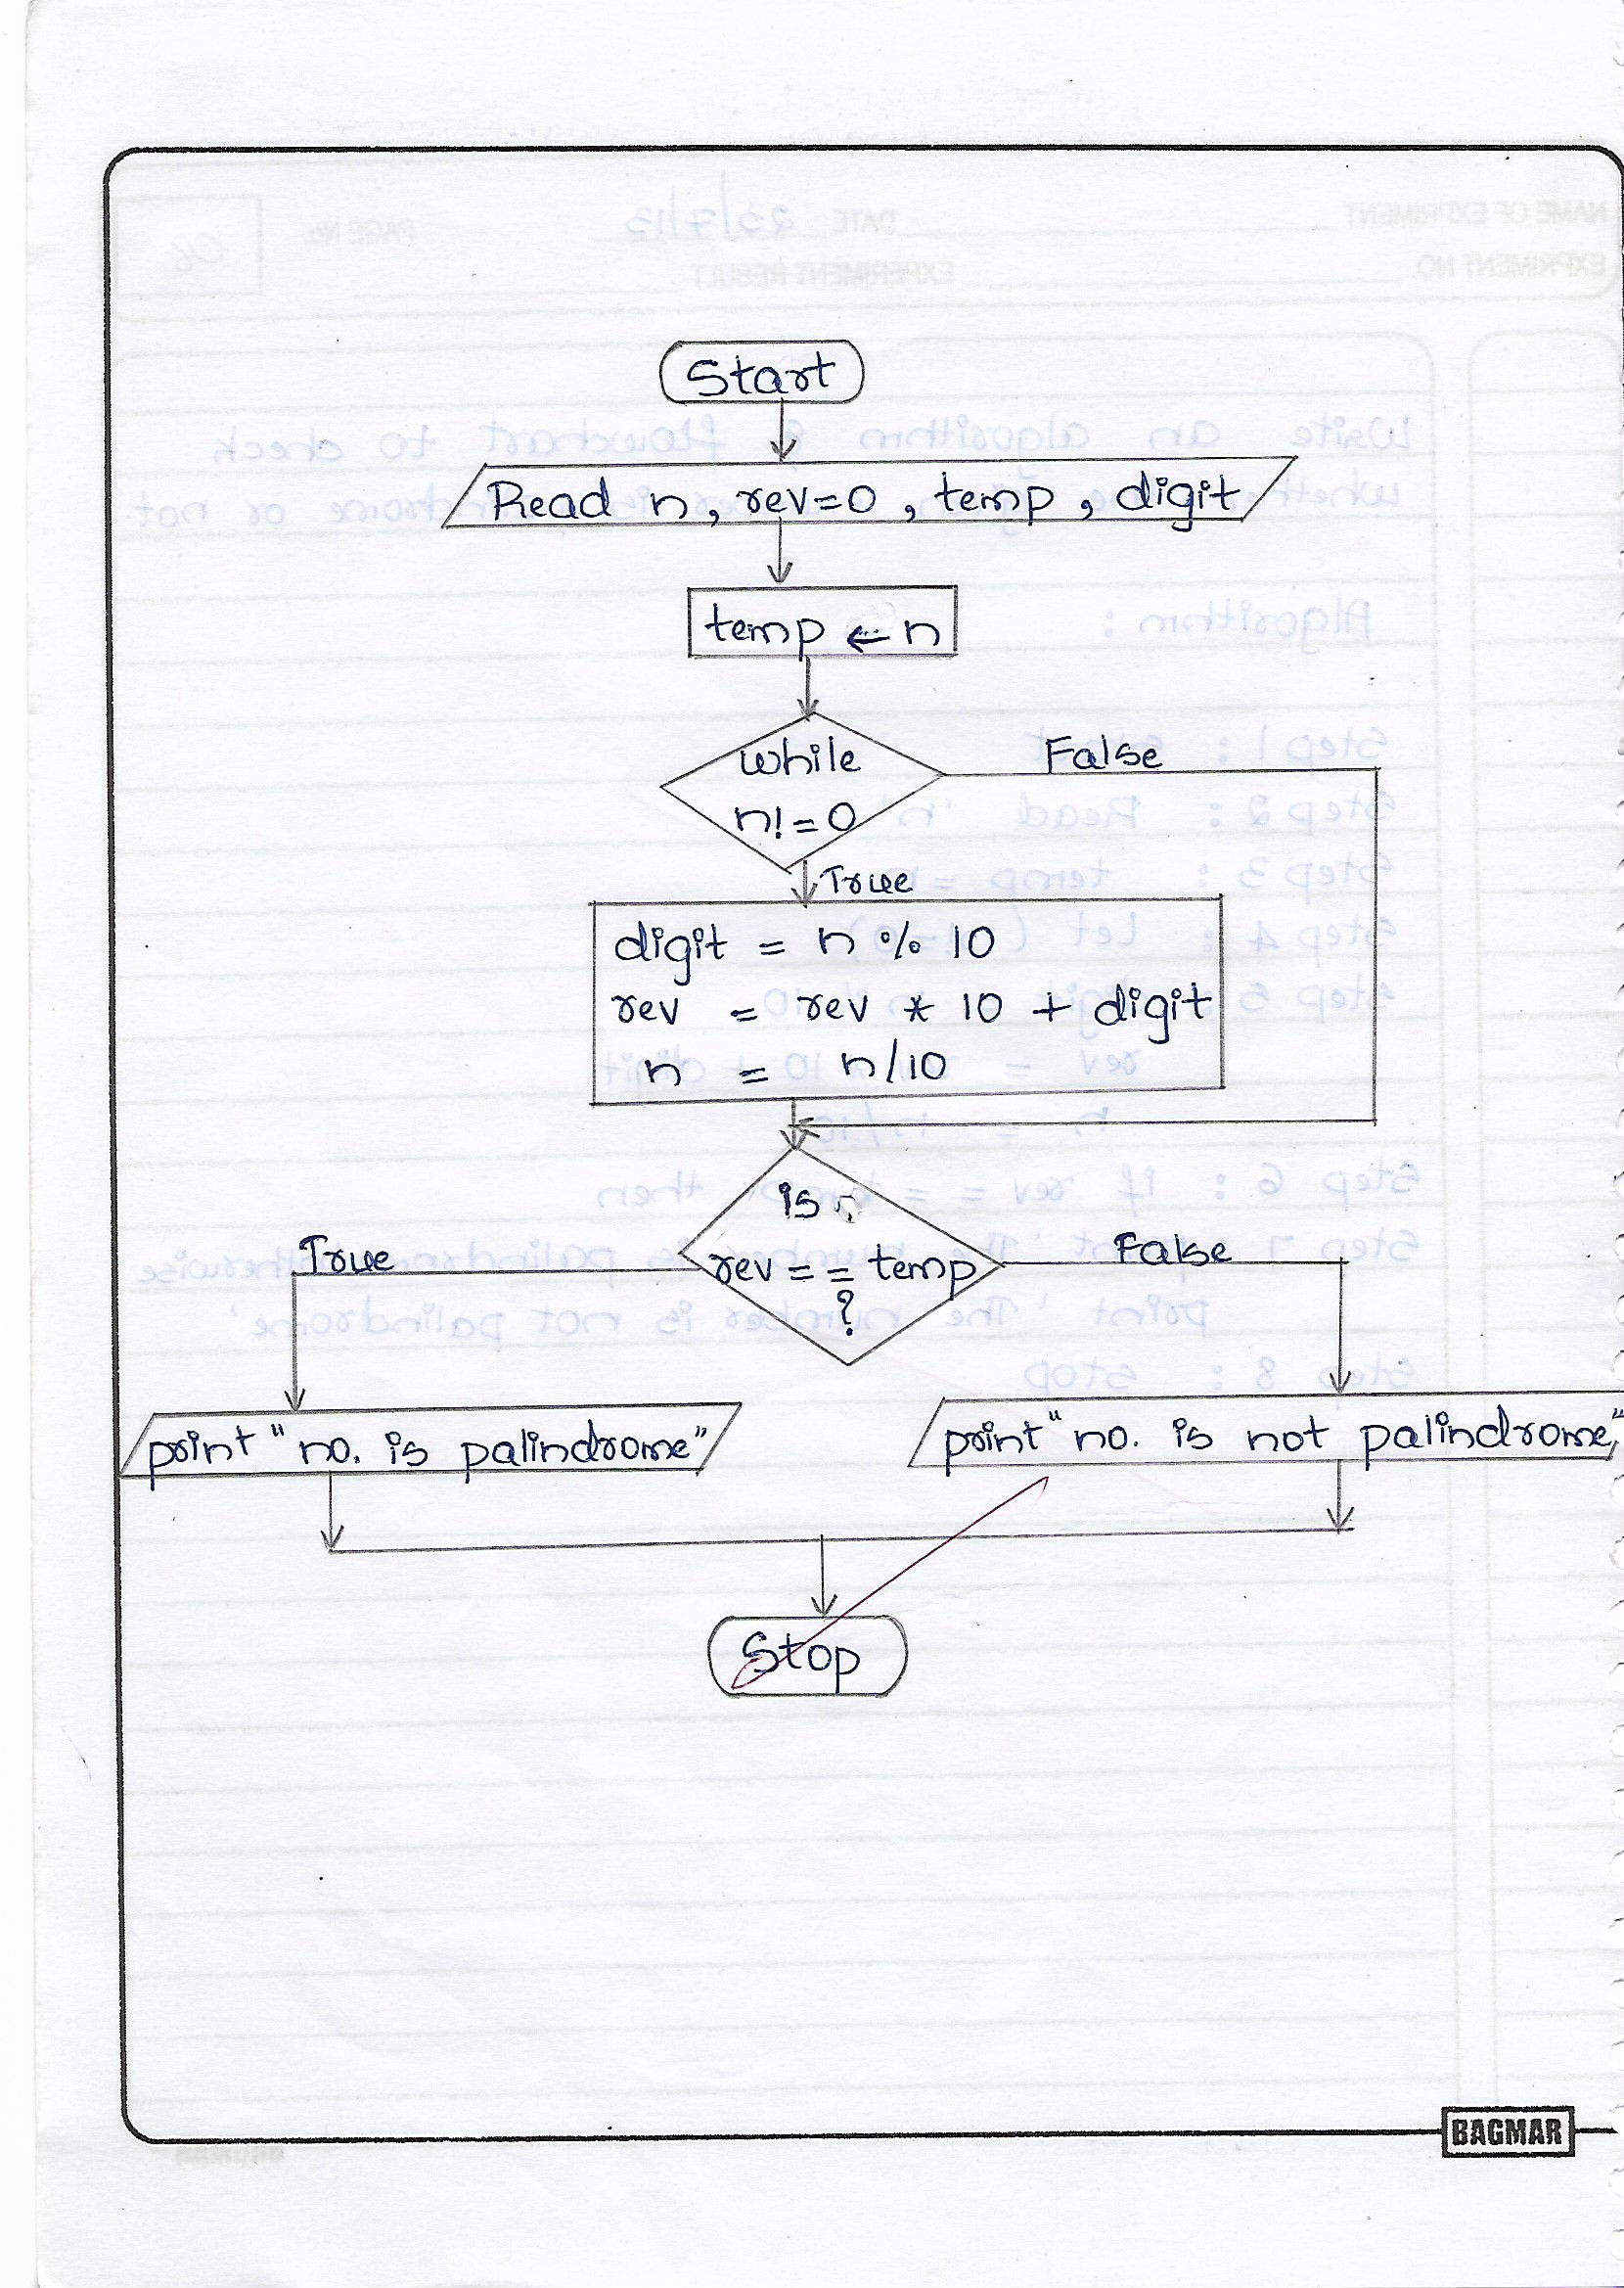 Start
Read n, rev=0, temp, digit
temp ← n
while
n!=0
False
True
digit = n % 10
rev = rev * 10 + digit
n = n/10
is
rev == temp
?
True
False
print "no. is palindrome"
print "no. is not palindrome"
Stop
BAGMAR